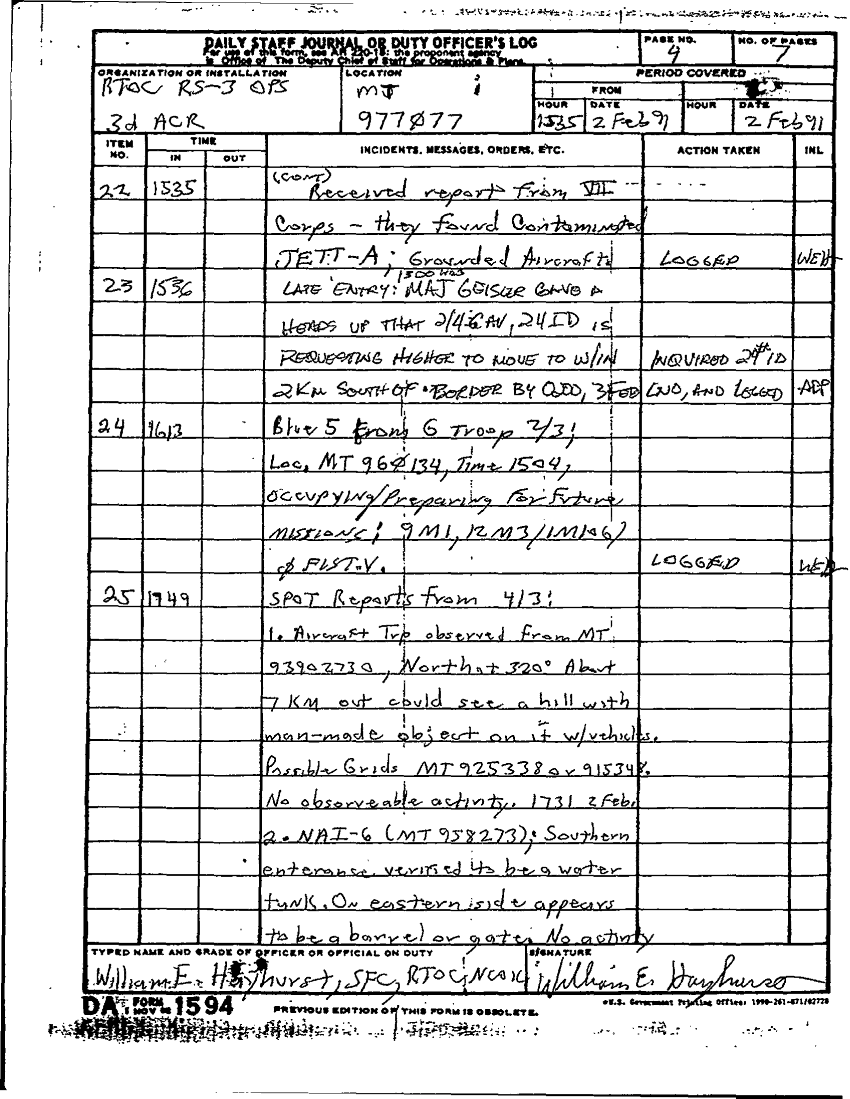 DAILY STAFF JOURNAL OR DUTY OFFICER'S LOG
For use of this form, see AR 220-15; the proponent agency
is Office of The Deputy Chief of Staff for Operations & Plans.
PAGE NO.
4
NO. OF PAGES
7
ORGANIZATION OR INSTALLATION
RTOC RS-3 OPS
3d ACR
LOCATION
MT
977077
PERIOD COVERED
FROM
HOUR DATE HOUR DATE
1535 2 Feb 91 2 Feb 91
ITEM NO.
TIME
IN OUT
INCIDENTS, MESSAGES, ORDERS, ETC.
ACTION TAKEN
INL
(CONT)
22 1535 Received report from VII
Corps - they found Contaminated
JETT-A; Grounded Aircraft LOGGED WEH
1500 HRS
23 1536 LATE ENTRY: MAJ GEISLER GAVE A
HEADS UP THAT 2/4 CAV, 24 ID IS
REQUESTING HIGHER TO MOVE TO W/IN INQUIRED 24th ID
2 KM SOUTH OF BORDER BY 3 FEB LNO, AND LOGGED ADP
24 1613 Blue 5 from G Troop 2/3:
Loc, MT 960134, Time 1504,
OCCUPYING/Preparing For Future
MISSIONS; 9 M1, 12 M3/1M106)
0 FIST-V. LOGGED WEH
25 1749 SPOT Reports from 4/3:
1. Aircraft Trp observed from MT
93902730, North at 320° About
7 KM out could see a hill with
man-made object on it w/vehicles.
Possible Grids MT 925338 or 915348.
No observeable activity. 1731 2 Feb.
2. NAI-6 (MT 958273); Southern
enterance verified to be a water
tank. On eastern side appears
to be a barrel or gate. No activity
TYPED NAME AND GRADE OF OFFICER OR OFFICIAL ON DUTY
William E. Hayhurst, SFC, RTOC, NCOIC
SIGNATURE
William E. Hayhurst
DA FORM 1594
1 NOV
PREVIOUS EDITION OF THIS FORM IS OBSOLETE.
*U.S. Government Printing Office: 1990-261-871/02728